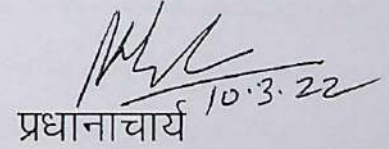 10.3.22
प्रधानाचार्य